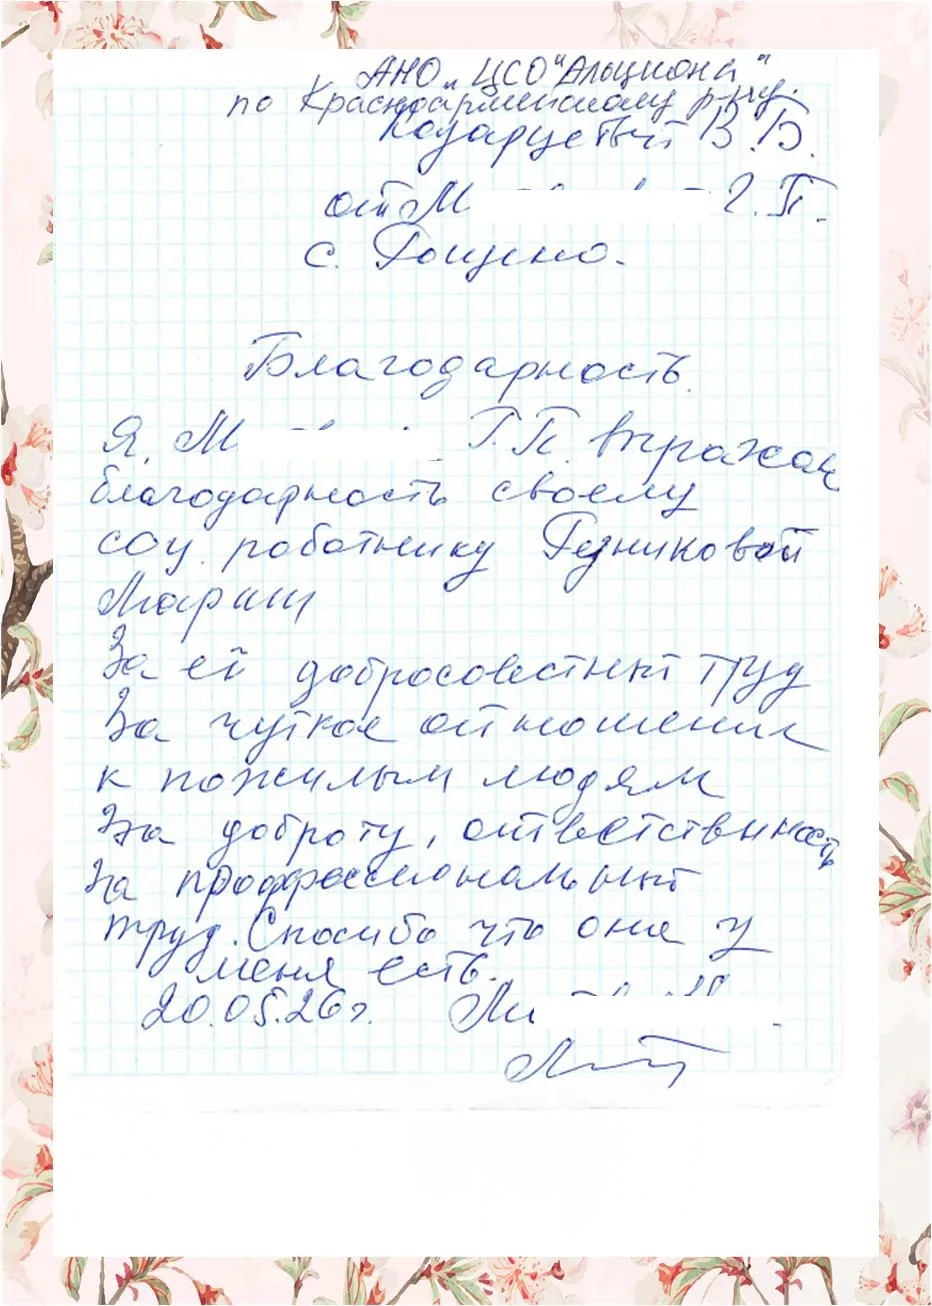 АНО „ЦСО "Альциона"
по Красноармейскому р-ну.
Козарцевой В.Б.
от М Г.П.
с. Рощино.
Благодарность.
Я, М Г.П. выражаю
благодарность своему
соц. работнику Гезниковой
Марии
За её добросовестный труд
За чуткое отношение
к пожилым людям
За доброту, ответственность
За профессиональный
труд. Спасибо что она у
меня есть.
20.05.26г.